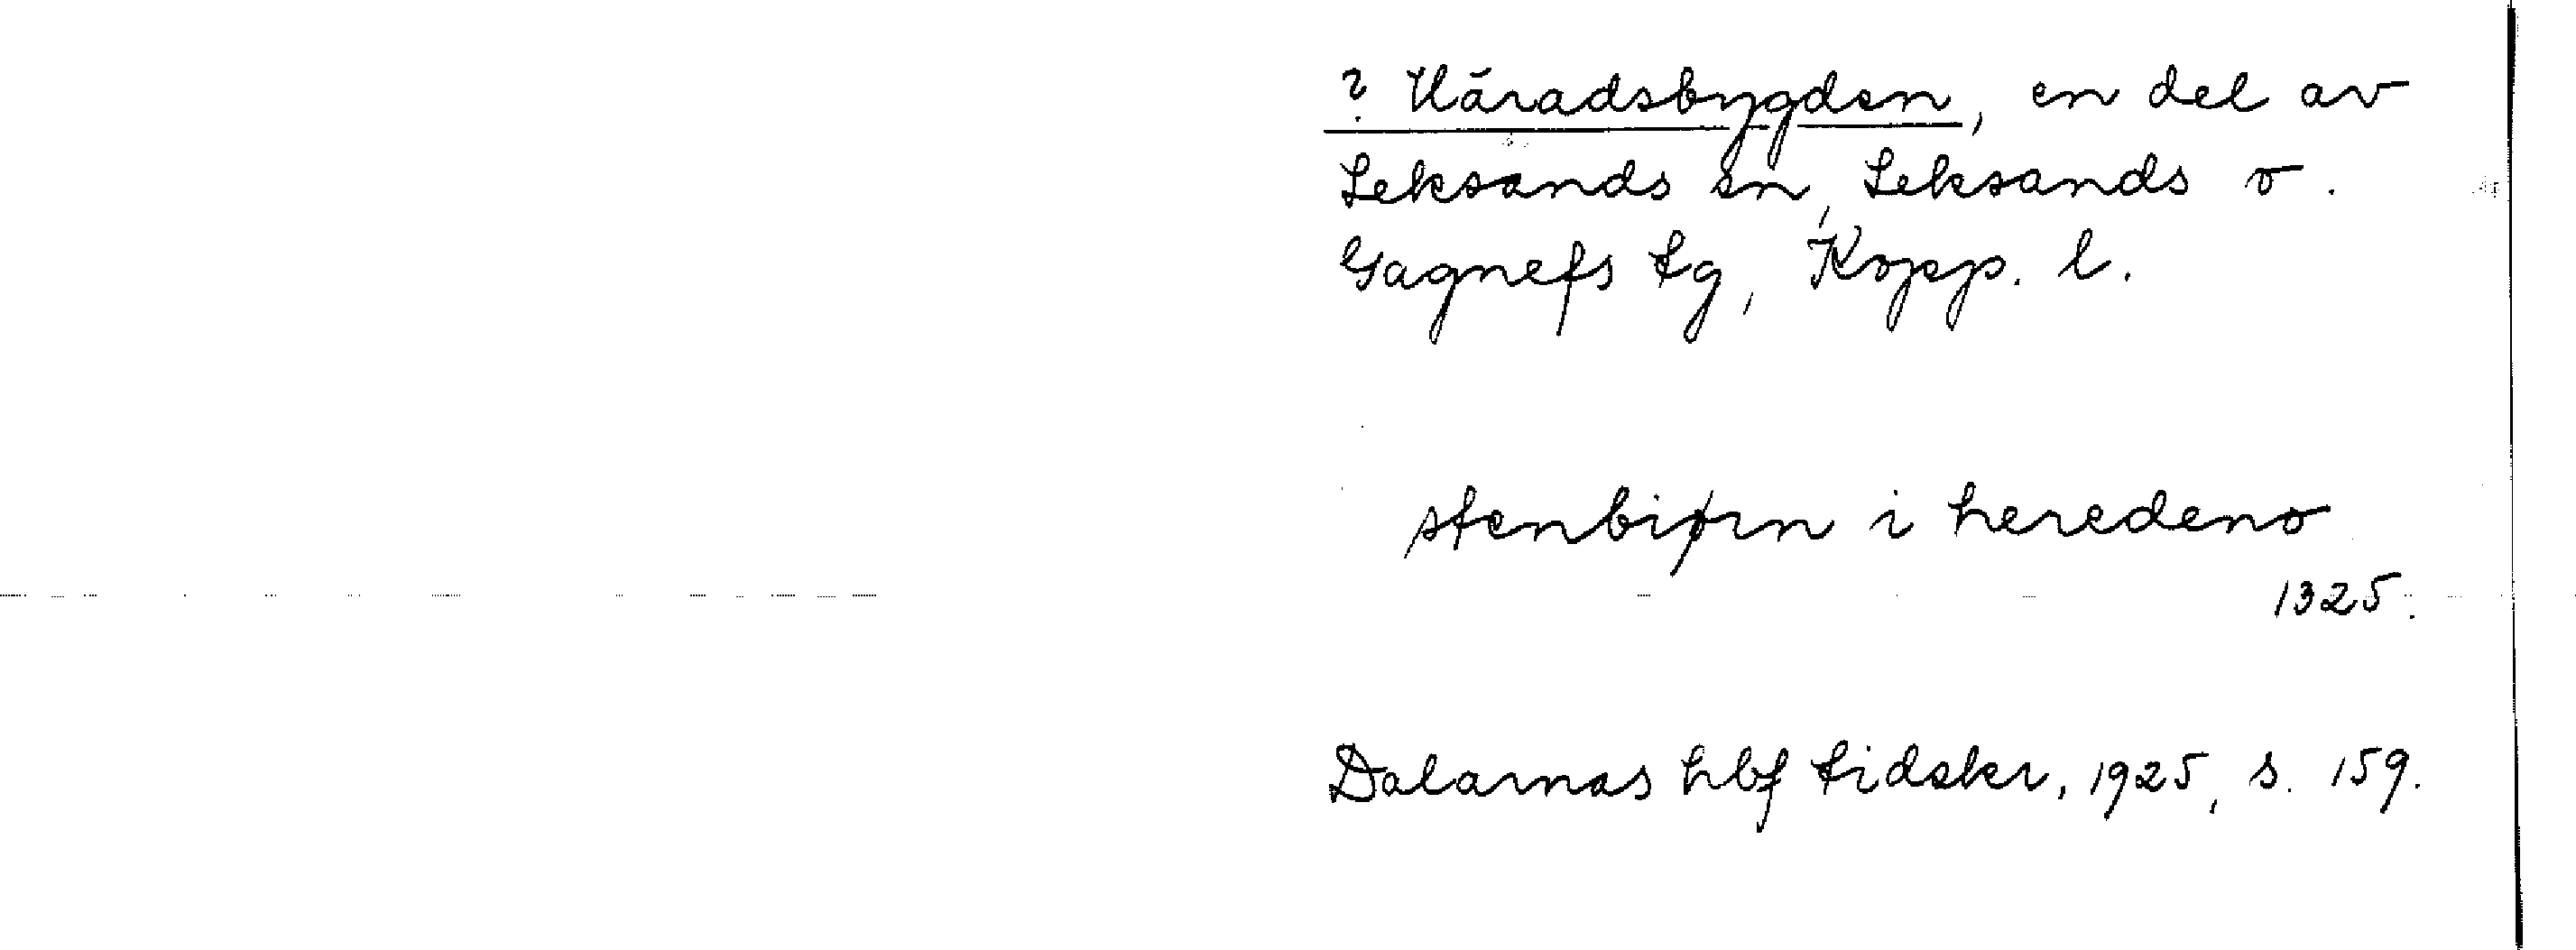 ? Häradsbygden, en del av
Leksands sn, Leksands o.
Gagnefs tg, Kopp. l.
stenbiørn i heredeno
1325.
Dalarnas hbf tidskr, 1925, s. 159.